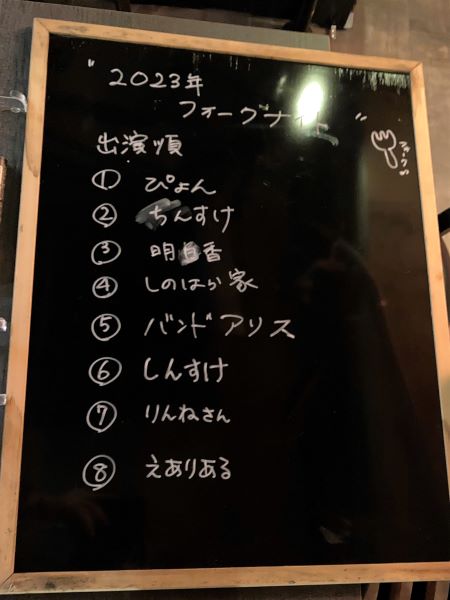 "2023年
フォークナイト"
フォーク!!
出演順
① ぴょん
② ちんすけ
③ 明日香
④ しのはら家
⑤ バンドアリス
⑥ しんすけ
⑦ りんねさん
⑧ えありある